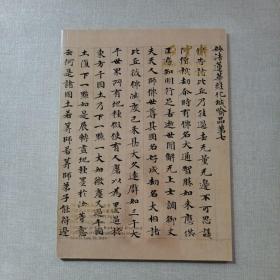 妙法蓮華經化城喻品第七
佛告諸比丘乃往過去无量无邊不可思議
阿僧祇劫尒時有佛名大通智勝如來應供
正遍知明行足善逝世間解无上士調御丈
夫天人師佛世尊其國名好成劫名大相諸
比丘彼佛滅度已來甚大久遠譬如三千大
千世界所有地種假使有人磨以為墨過於
東方千國土乃下一點大如微塵又過千國
土復下一點如是展轉盡地種墨於汝等意
云何是諸國土若筭師若筭師弟子能得邊